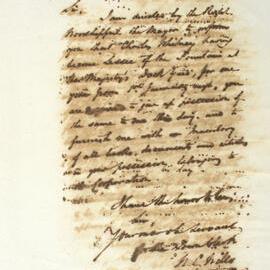 Sir
I am directed by the Right
Worshipful the Mayor to inform
you that Charles Whiney having
become Lessee of the Fountain at
Her Majesty's Dock Yard, for one
year from 1st January next, you
are required to give up possession of
the same to him this day, and to
furnish me with an Inventory
of all books, documents and articles
in your possession, belonging to
the Corporation
I have the honor to be
Sir
Your obt Servant
for the Town Clerk